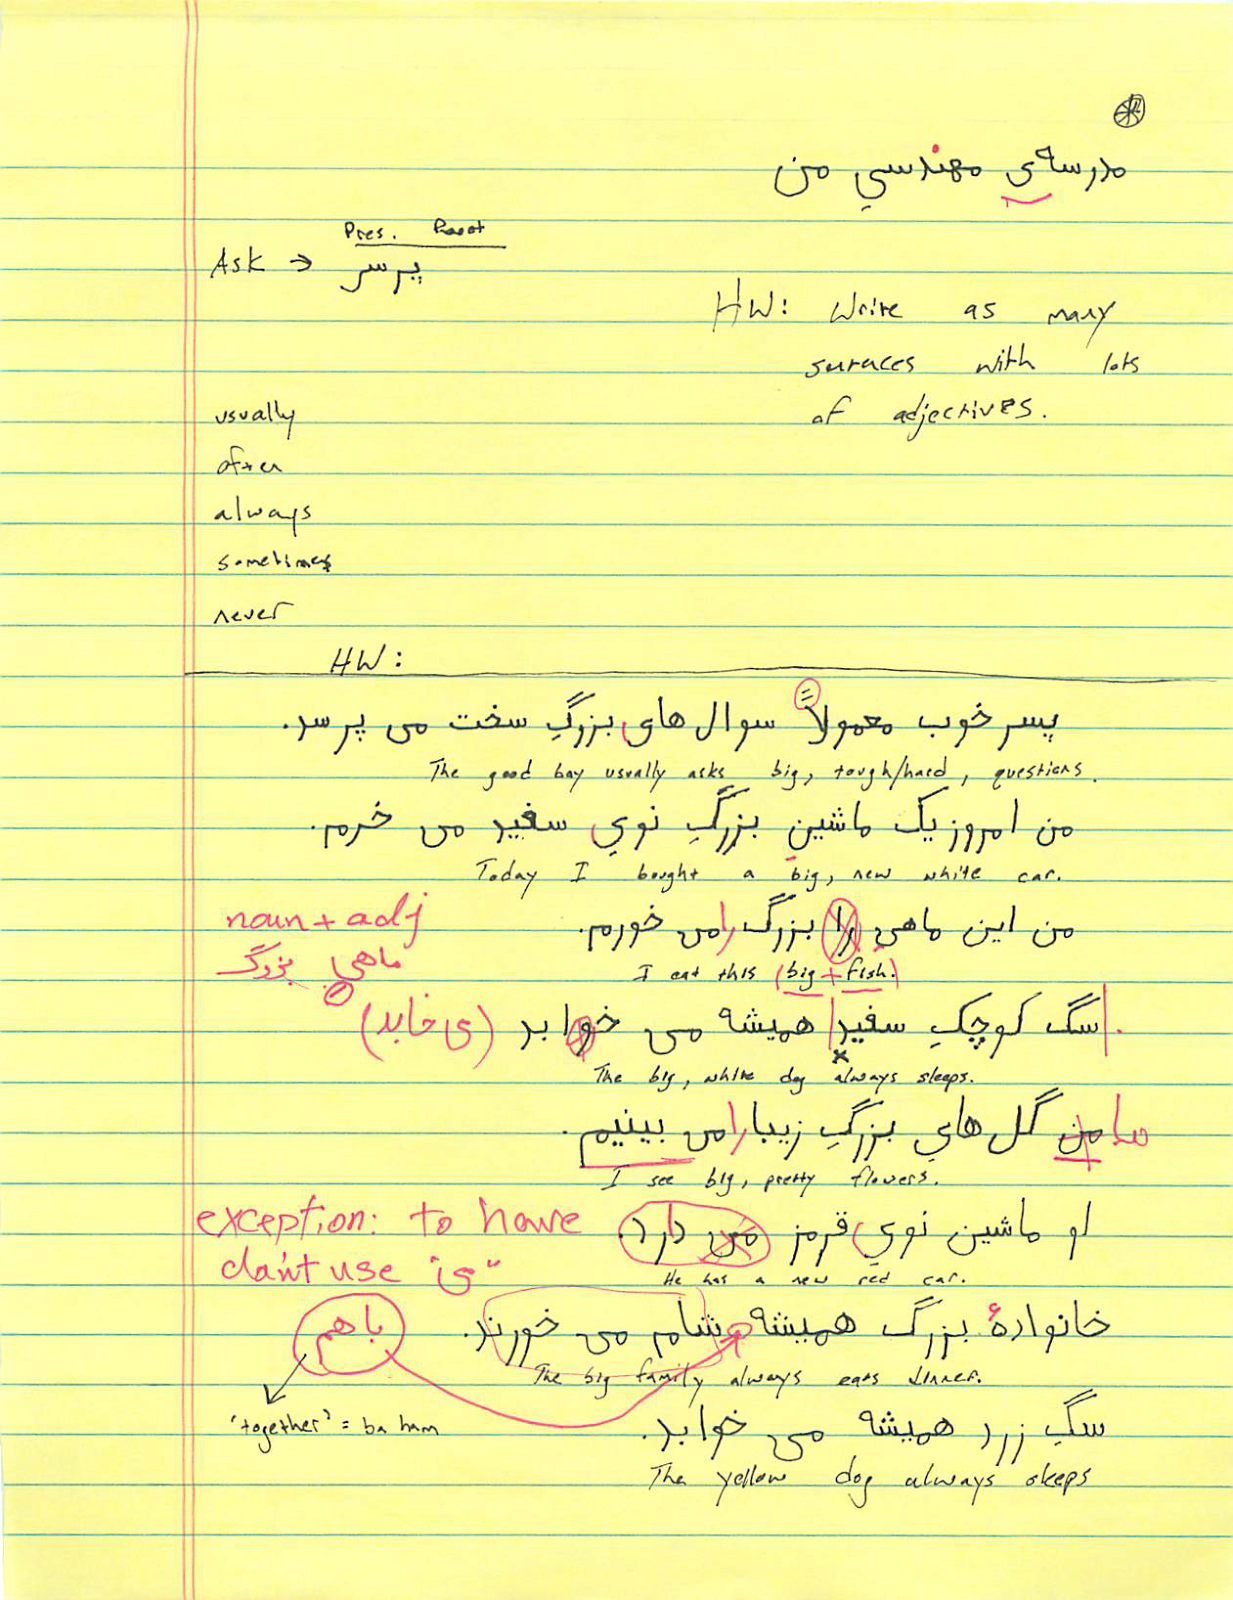 مدرسه‌ی مهندسیِ من
Pres. Root
Ask → پرس
HW: Write as many
with lots
of adjectives.
usually
often
always
sometimes
never
HW:
پسر خوب معمولاً سوال های بزرگِ سخت می پرسد.
The good boy usually asks big, tough/hard, questions.
من امروز یک ماشین بزرگِ نویِ سفید می خرم.
Today I bought a big, new white car.
noun + adj
ماهیِ بزرگ
من این ماهی را بزرگ را می خورم.
I eat this (big + fish.)
سگ کوچکِ سفید همیشه می خوابد (ی خابد)
The big, white dog always sleeps.
ما من گل هایِ بزرگِ زیبا را می بینیم.
I see big, pretty flowers.
exception: to have
don't use "ی"
او ماشین نویِ قرمز می دارد.
He has a new red car.
خانوادهٔ بزرگ همیشه شام می خورند.
با هم
The big family always eats dinner.
'together' = ba ham
سگِ زرد همیشه می خوابد.
The yellow dog always sleeps